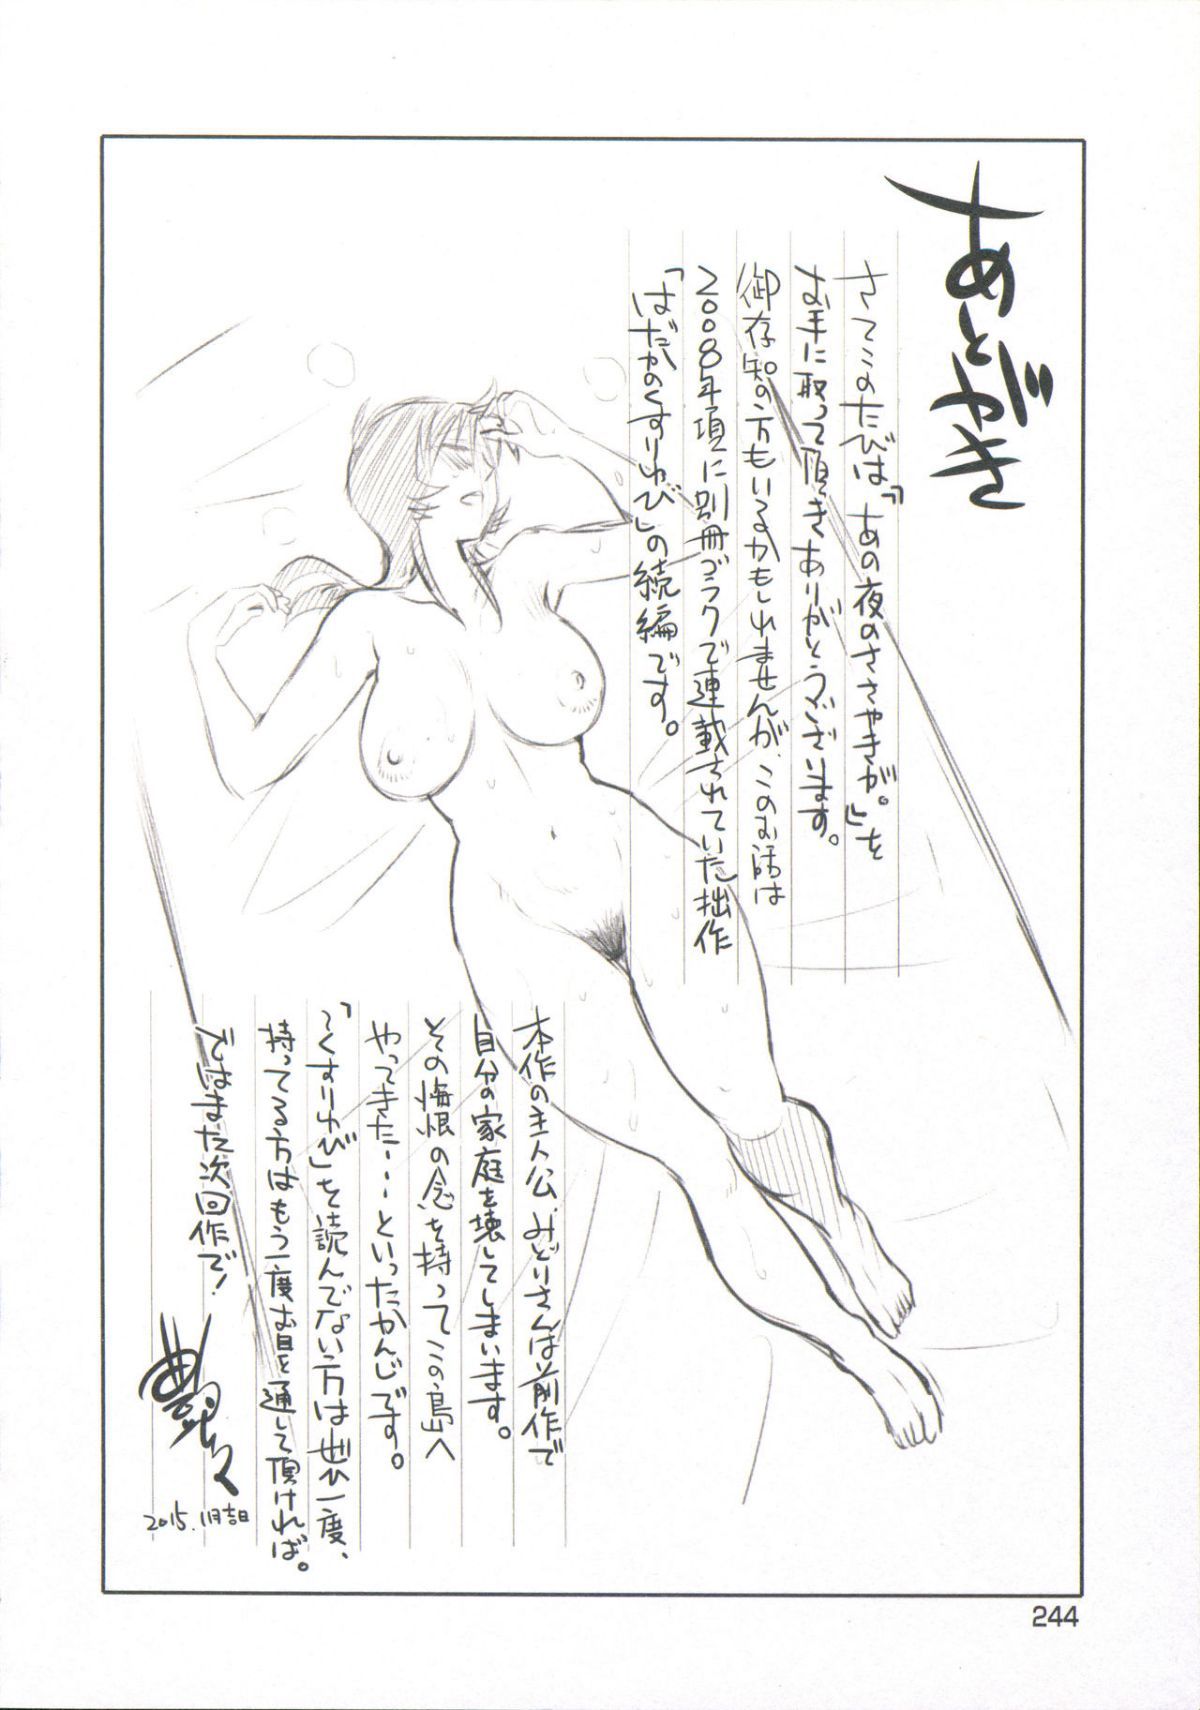 あとがき
さてこのたびは「あの夜のささやきが。」を
お手に取って頂きありがとうございます。
御存知の方もいるかもしれませんが、このお話は
2008年項に別冊ゴラクで連載されていた拙作
「はだかのくすりゆび」の続編です。
本作の主人公、みどりさんは前作で
自分の家庭を壊してしまいます。
その悔恨の念を持ってこの島へ
やってきた…といったかんじです。
「〜くすりゆび」を読んでない方は世ひ一度、
持ってる方はもう一度お目を通して頂ければ。
ではまた次回作で!
艶々
2015.11月吉日
244